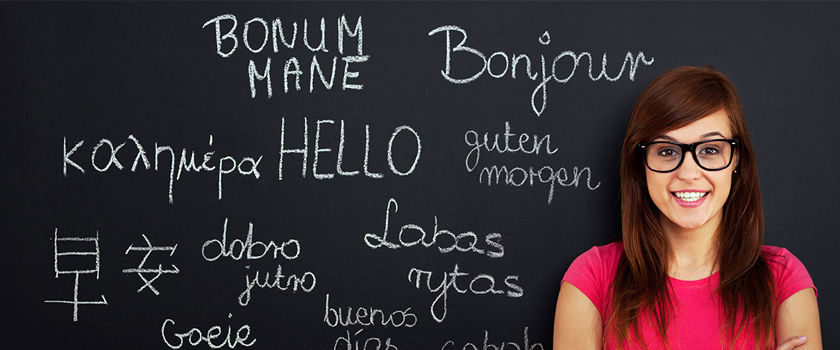 BONUM
MANE
Bonjour
καλημέρα
HELLO
guten
morgen
早
dobro
jutro
Labas
rytas
Goeie
buenos
días